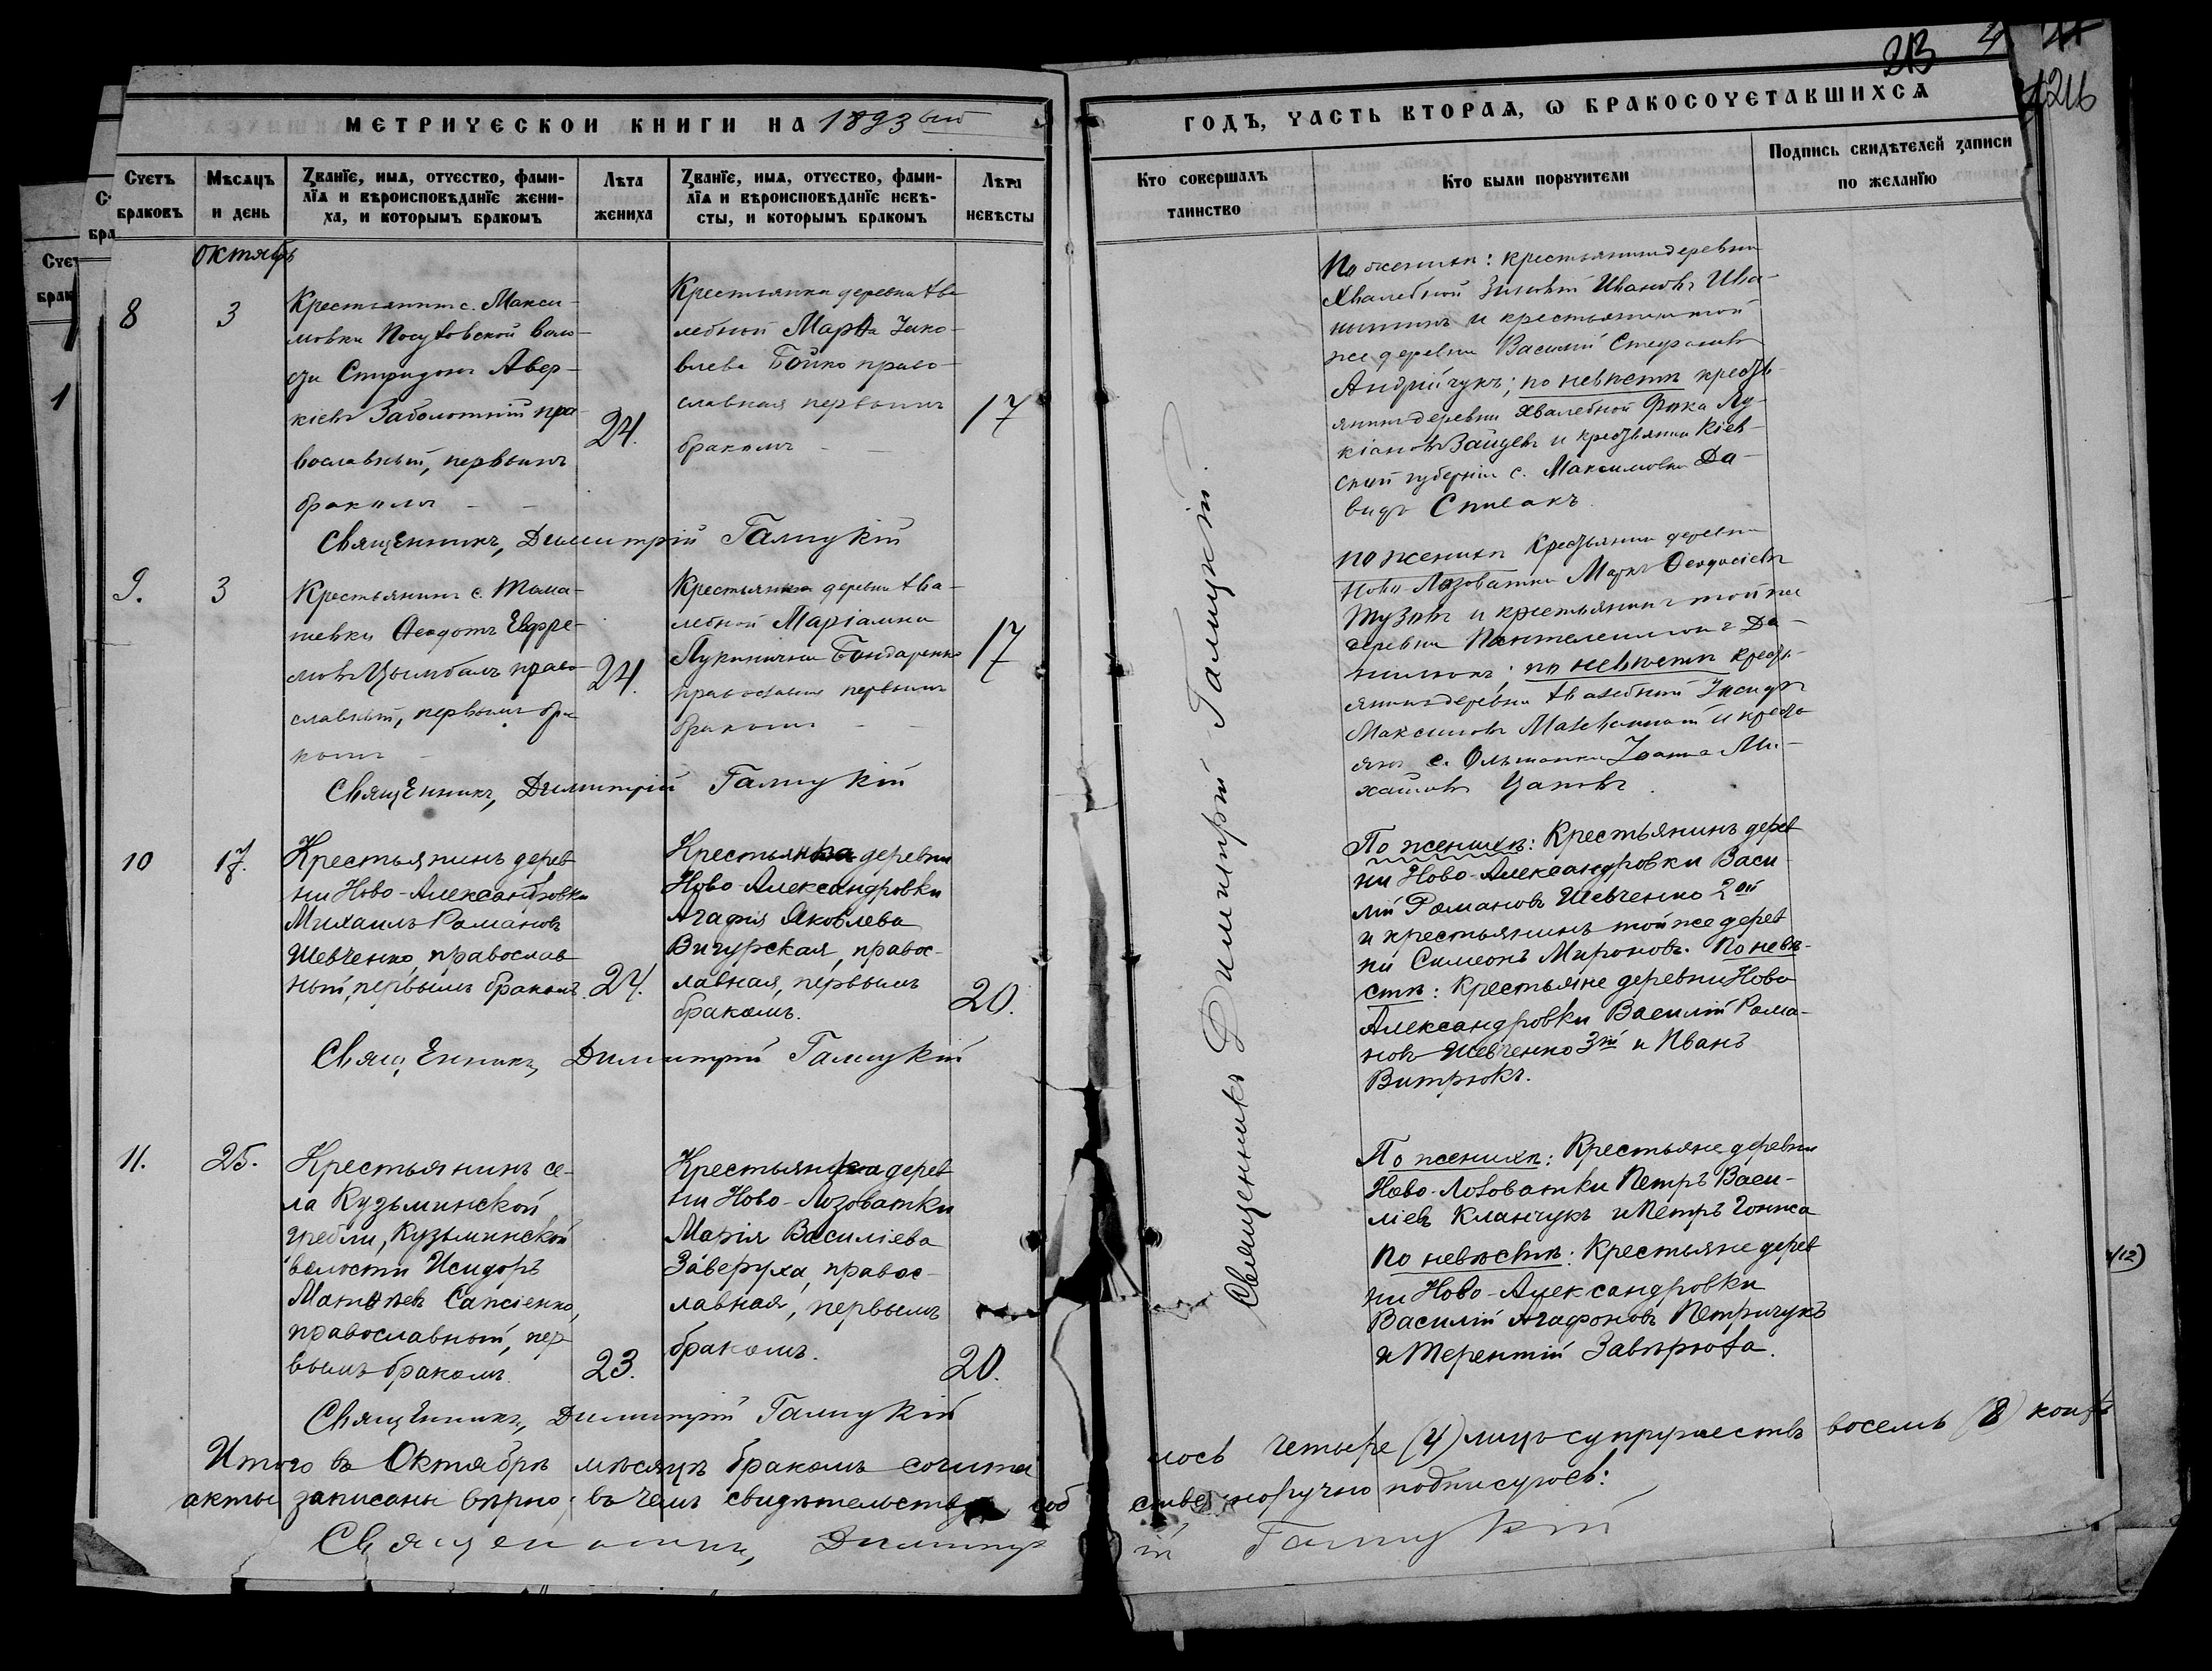 213
4
216
МЕТРИЧЕСКОЙ КНИГИ НА 1893 ый
ГОДЪ, ЧАСТЬ ВТОРАЯ, О БРАКОСОЧЕТАВШИХСЯ
Счетъ браковъ
Мѣсяцъ и день
Званіе, имя, отчество, фами-
лія и вѣроисповѣданіе жени-
ха, и которымъ бракомъ
Лѣта жениха
Званіе, имя, отчество, фами-
лія и вѣроисповѣданіе невѣ-
сты, и которымъ бракомъ
Лѣта невѣсты
Кто совершалъ таинство
Кто были поручители
Подпись свидѣтелей записи
по желанію
Октябрь
8
3
Крестьянинъ с. Макси-
мовки Посуховской воло-
сти Спиридонъ Авер-
кіевъ Заболотній пра-
вославный, первымъ
бракомъ
24.
Крестьянка деревни Хва-
лебной Марѳа Яко-
влева Бойко право-
славная первымъ
бракомъ
17
Священникъ, Димитрій Галицкій
По женихѣ: крестьянинъ деревни
Хвалебной Зиновій Ивановъ Ива-
нишинъ и крестьянинъ той
же деревни Василій Стефановъ
Андрійчукъ; по невѣстѣ кресть-
янинъ деревни Хвалебной Фока Лу-
кіановъ Зайцевъ и крестьянинъ Кіев-
ской губерніи с. Максимовки Да-
видъ Спивакъ.
9.
3
Крестьянинъ с. Тома-
шевки Ѳеодотъ Евфре-
мовъ Цымбалъ право-
славный, первымъ бра-
комъ
24.
Крестьянка деревни Хва-
лебной Маріамна
Лукинична Бондаренко
православная первымъ
бракомъ
17
Священникъ, Димитрій Галицкій
по женихѣ крестьянинъ деревни
Ново-Лозоватки Маркъ Ѳеодосіевъ
Тузъ и крестьянинъ той же
деревни Пантелеимонъ Да-
нилюкъ; по невѣстѣ кресть-
янинъ деревни Хвалебной
Максимовъ и кресть-
янинъ с. Ольшанки Іоаннъ Ми-
хаиловъ Цаповъ.
10
17.
Крестьянинъ дерев
ни Ново-Александровки
Михаилъ Романовъ
Шевченко, православ
ный, первымъ бракомъ.
24.
Крестьянка деревни
Ново-Александровки
Агафія Яковлева
Вичурская, правос-
лавная, первымъ
бракомъ.
20.
Священникъ, Димитрій Галицкій
По женихѣ: Крестьянинъ дерев
ни Ново-Александровки Васи-
лій Романовъ Шевченко 2ой
и крестьянинъ той же дерев
ни Симеонъ Мироновъ. По невѣ-
стѣ: Крестьяне деревни Ново
Александровки Василій Рома-
новъ Шевченко 3ій и Иванъ
Витрюкъ.
11.
25.
Крестьянинъ се-
ла Кузьминской
гребли, Кузьминской
волости Исидоръ
Матѳѣевъ Сапсіенко,
православный, пер
вымъ бракомъ.
23.
Крестьянка дерев
ни Ново-Лозоватки
Марія Василіева
Заверуха, правос-
лавная, первымъ
бракомъ.
20.
Священникъ, Димитрій Галицкій
По женихѣ: Крестьяне деревни
Ново-Лозоватки Петръ Васи-
ліевъ Кланчукъ и Петръ Гонжа
По невѣстѣ: Крестьяне дерев
ни Ново-Александровки
Василій Агафоновъ Петричукъ
и Терентій Завѣрюха.
Священникъ Димитрій Галицкій.
Итого въ Октябрѣ мѣсяцѣ бракомъ сочета
лось четыре (4) лицъ супружествъ восемь (8) коихъ
акты записаны вѣрно; въ чемъ свидѣтельствуя соб
ственноручно подписуюсь:
Священникъ, Димитр
ій Галицкій